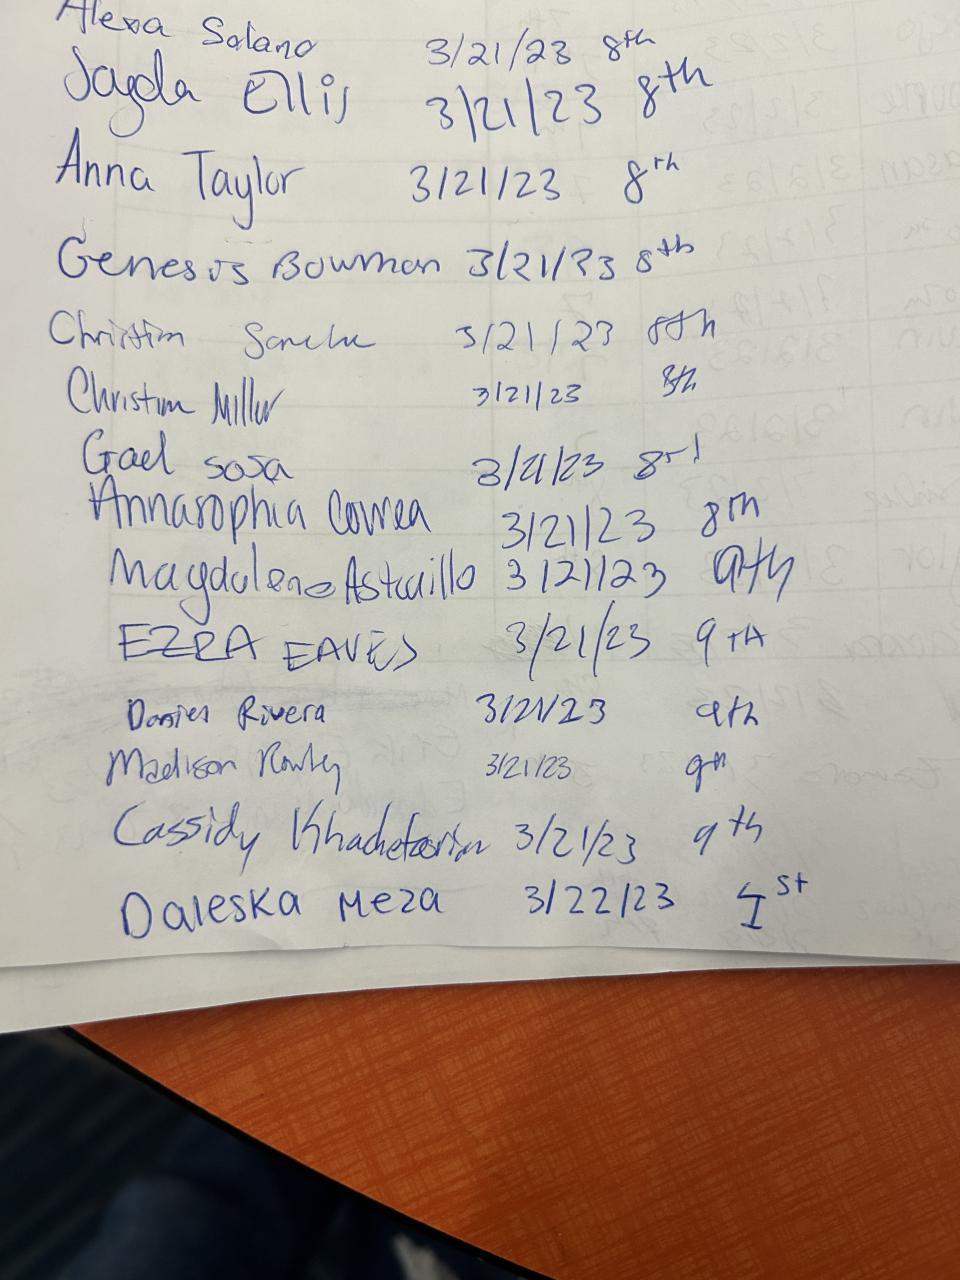 Alexa Solano 3/21/23 8th
Jayda Ellis 3/21/23 8th
Anna Taylor 3/21/23 8th
Genesis Bowman 3/21/23 8th
Christian 3/21/23 8th
Christian Miller 3/21/23 8th
Gael sosa 3/21/23 8rd
Annasophia Correa 3/21/23 8th
Magdalena 3/21/23 9th
EZRA EAVES 3/21/23 9TH
Daniel Rivera 3/21/23 9th
Madison 3/21/23 9th
Cassidy 3/21/23 9th
Daleska Meza 3/22/23 1st